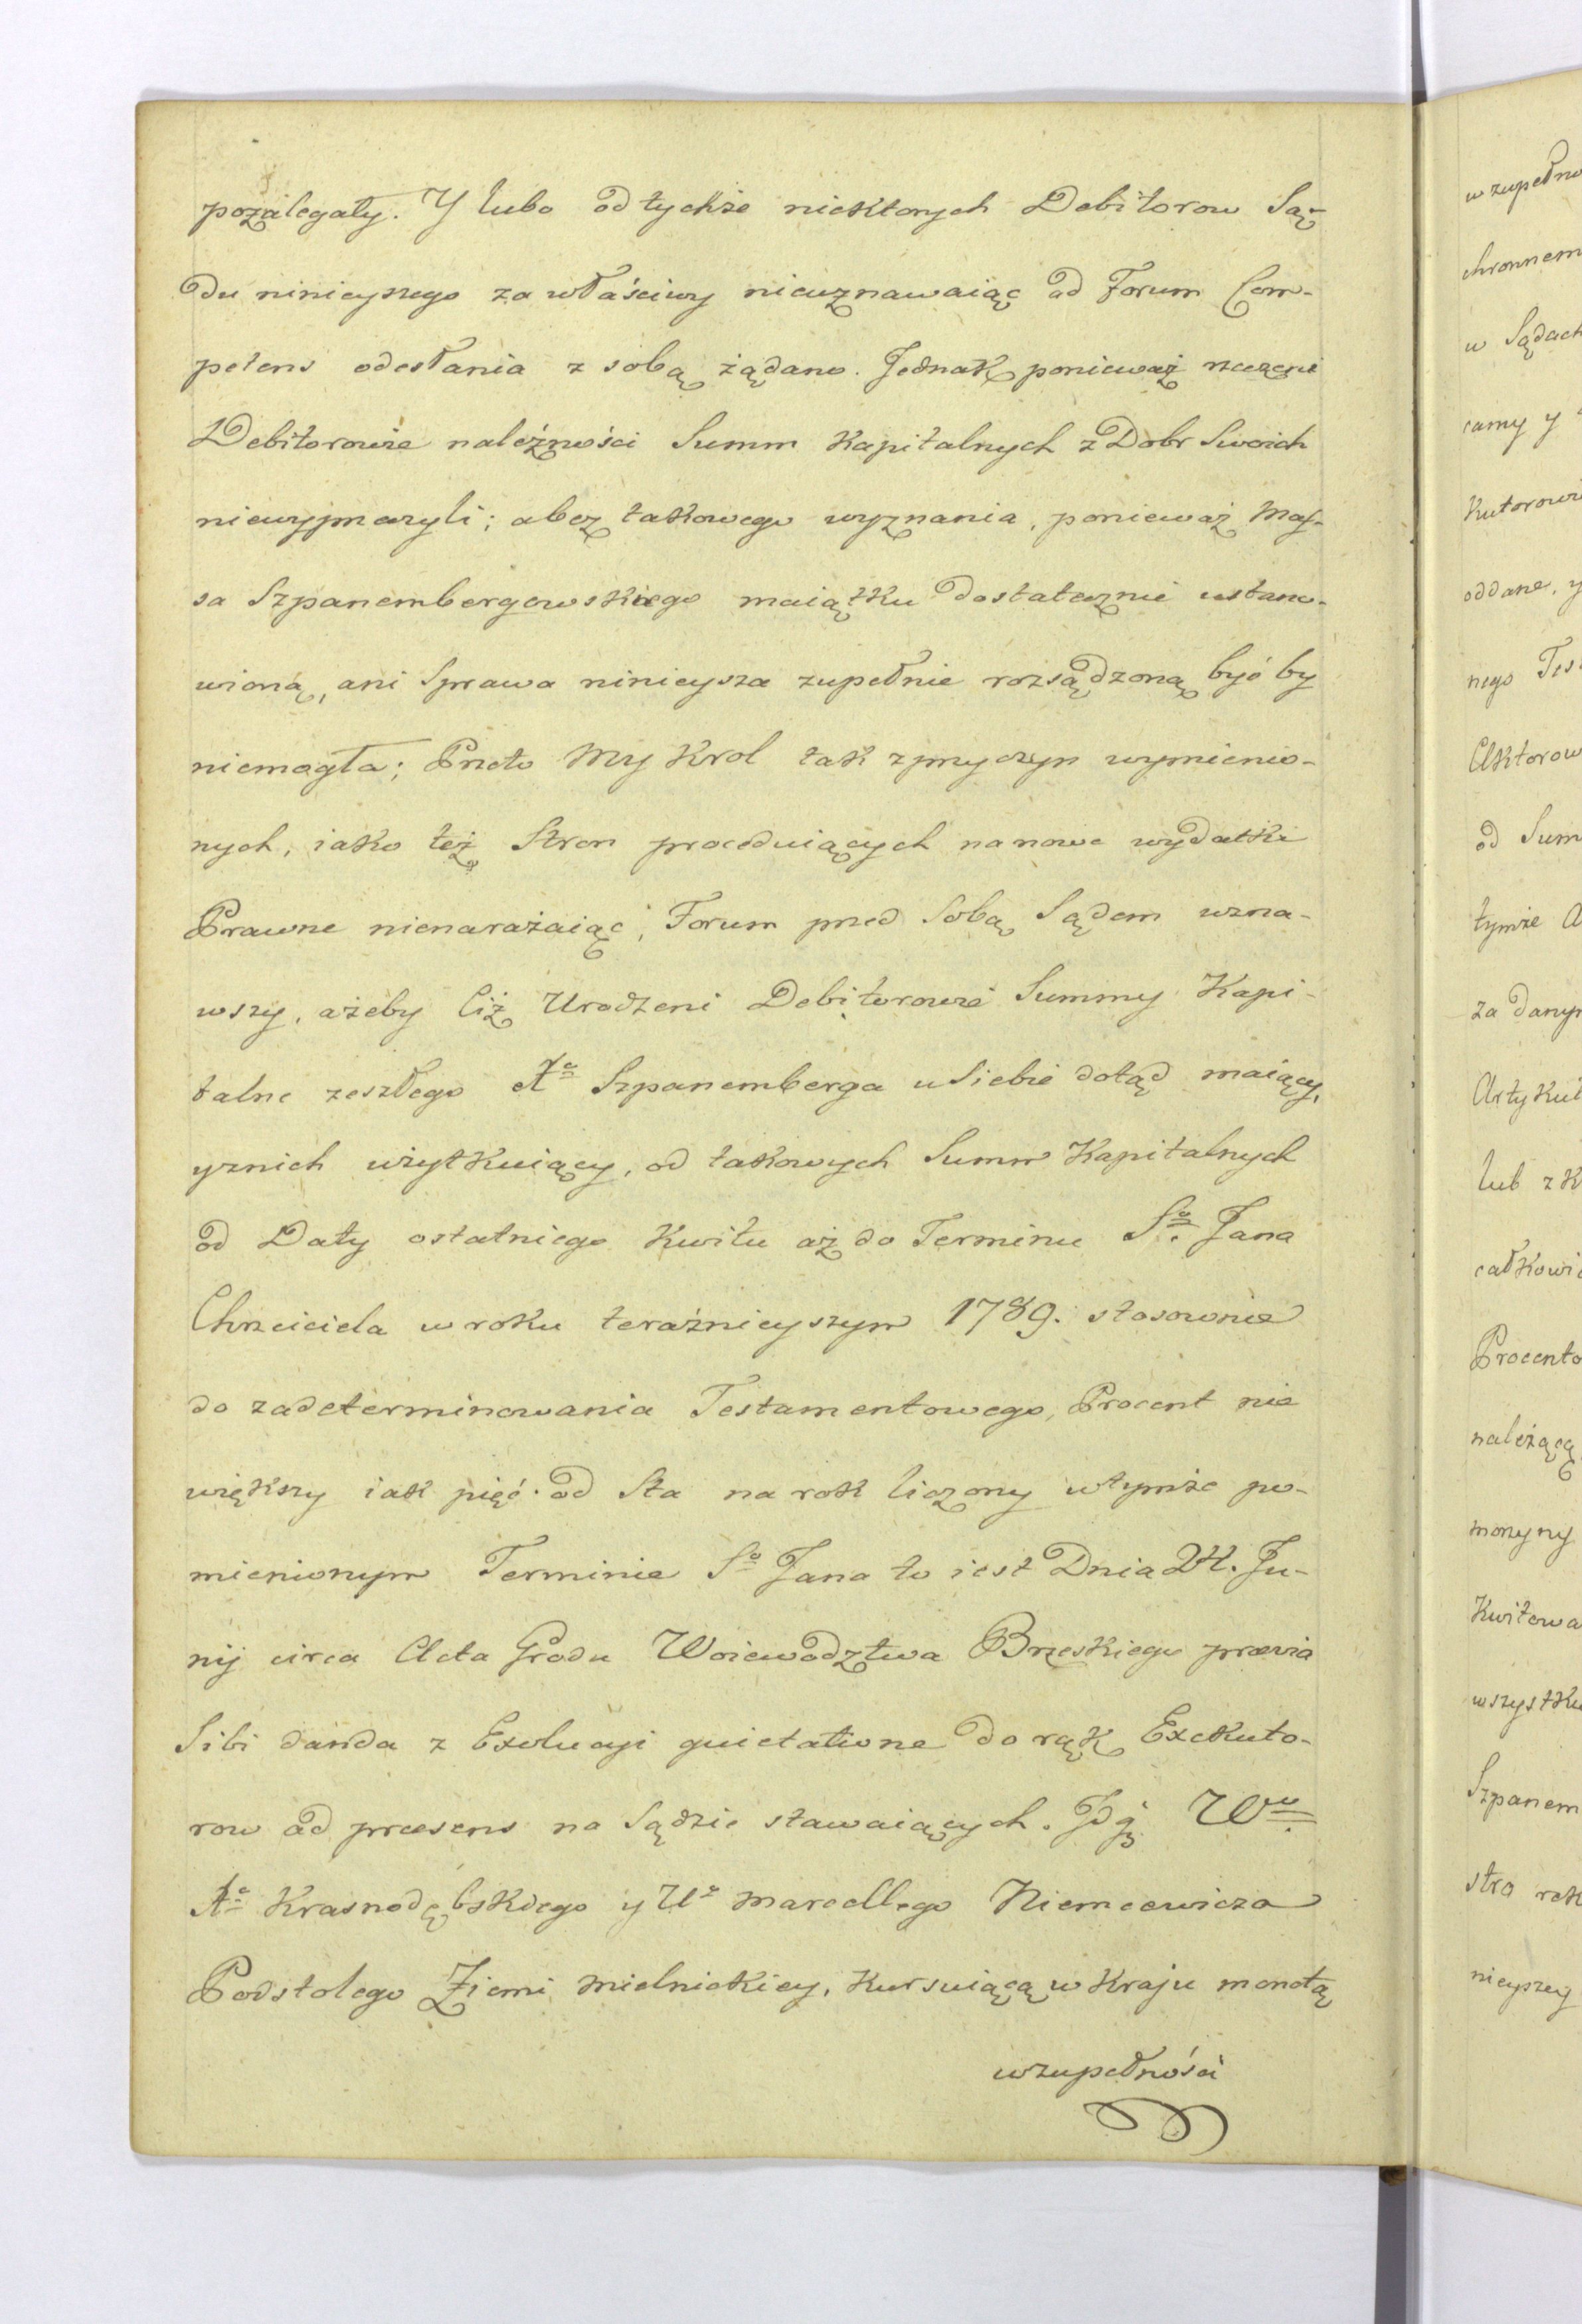 pozalegały. Y lubo od tychże niektorych Debitorow Są-
du ninieyszego za właściwy nieuznawaiąc ad Forum Com-
petens odesłania z sobą żądano. Jednak ponieważ rzeczeni
Debitorowie należności Summ Kapitalnych z Dobr Swoich
niewyprzeczyli; a bez takowego wyznania, ponieważ Mas-
sa Szpanembergowskiego maiątku dostatecznie ustano-
wioną, ani Sprawa ninieysza zupełnie rozsądzoną być by
niemogła; Przeto My Krol tak z przyczyn wymienio-
nych, iako też Stron proceduiących na nowe wydatki
Prawne nienarażaiąc, Forum przed Sobą Sądem uzna-
wszy, ażeby Ciż Urodzeni Debitorowie Summy Kapi-
talne zeszłego Xa Szpanemberga u Siebie dotąd maiący,
y z nich użytkuiący, od takowych Summ Kapitalnych
od Daty ostatniego Kwitu aż do Terminu So Jana
Chrzciciela w roku teraźnieyszym 1789. stosownie
do zadeterminowania Testamentowego, Procent nie
większy iak pięć od Sta na rok liczony w tymże po-
mienionym Terminie So Jana to iest Dnia 24. Ju-
nij circa Acta Grodu Woiewodztwa Brzeskiego prævia
Sibi danda z Exolucyi quietatione do rąk Exekuto-
row ad præsens na Sądzie stawaiących. Jdq Wo
Xa Krasnodębskiego y Uo Marcellego Niemcewicza
Podstolego Ziemi Mielnickiey, Kursuiącą w Kraju monetą
w zupełności
w zupełno
chronnem
w Sądach
camy y
kutorowi
oddane, y
nego Tes
Aktorow
od Sum
tymże A
za danym
Artykuł
lub z K
całkowi
Procento
należącą
Kwitowa
wszystki
Szpanem
stra rek